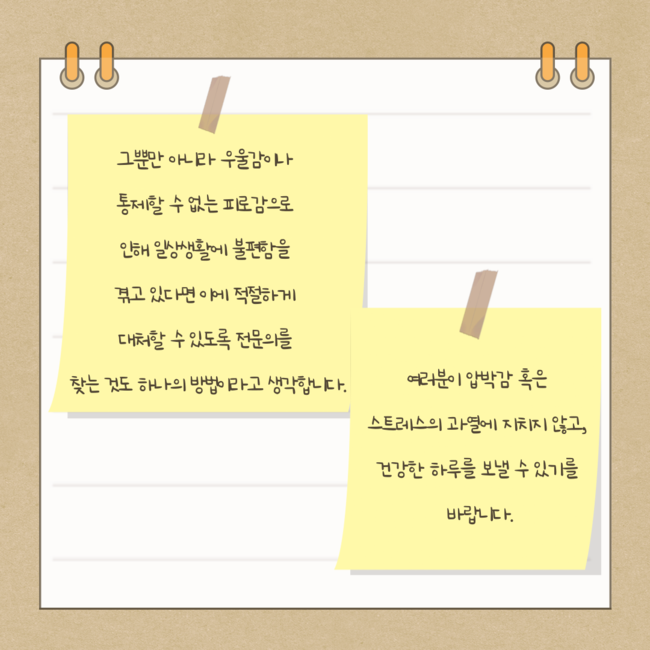 그뿐만 아니라 우울감이나
통제할 수 없는 피로감으로
인해 일상생활에 불편함을
겪고 있다면 이에 적절하게
대처할 수 있도록 전문의를
찾는 것도 하나의 방법이라고 생각합니다.
여러분이 압박감 혹은
스트레스의 과열에 지치지 않고,
건강한 하루를 보낼 수 있기를
바랍니다.